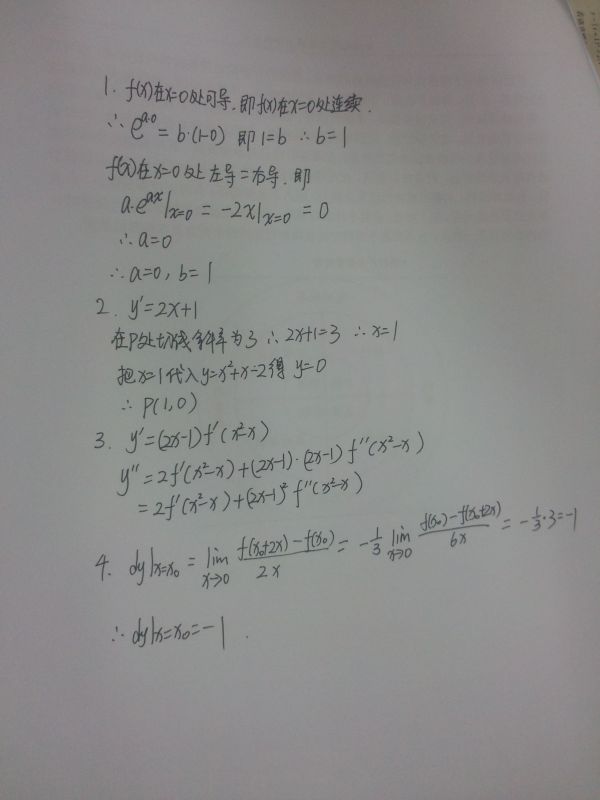 1. f(x)在x=0处可导,即f(x)在x=0处连续.
∴ e^{a·0} = b·(1-0) 即 1=b ∴ b=1
f(x)在x=0处 左导=右导.即
a·e^{ax}|_{x=0} = -2x|_{x=0} = 0
∴ a=0
∴ a=0, b=1
2. y'=2x+1
在P处切线斜率为3 ∴ 2x+1=3 ∴ x=1
把x=1代入y=x²+x-2得 y=0
∴ P(1,0)
3. y'=(2x-1)f'(x²-x)
y''=2f'(x²-x)+(2x-1)·(2x-1)f''(x²-x)
=2f'(x²-x)+(2x-1)²f''(x²-x)
4. dy|x=x₀ = lim_{x→0} \frac{f(x₀+2x)-f(x₀)}{2x} = -\frac{1}{3} lim_{x→0} \frac{f(x₀)-f(x₀+2x)}{6x} = -\frac{1}{3}·3=-1
∴ dy|x=x₀=-1.